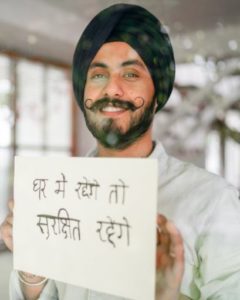 घर में रहेंगे तो
सुरक्षित रहेंगे